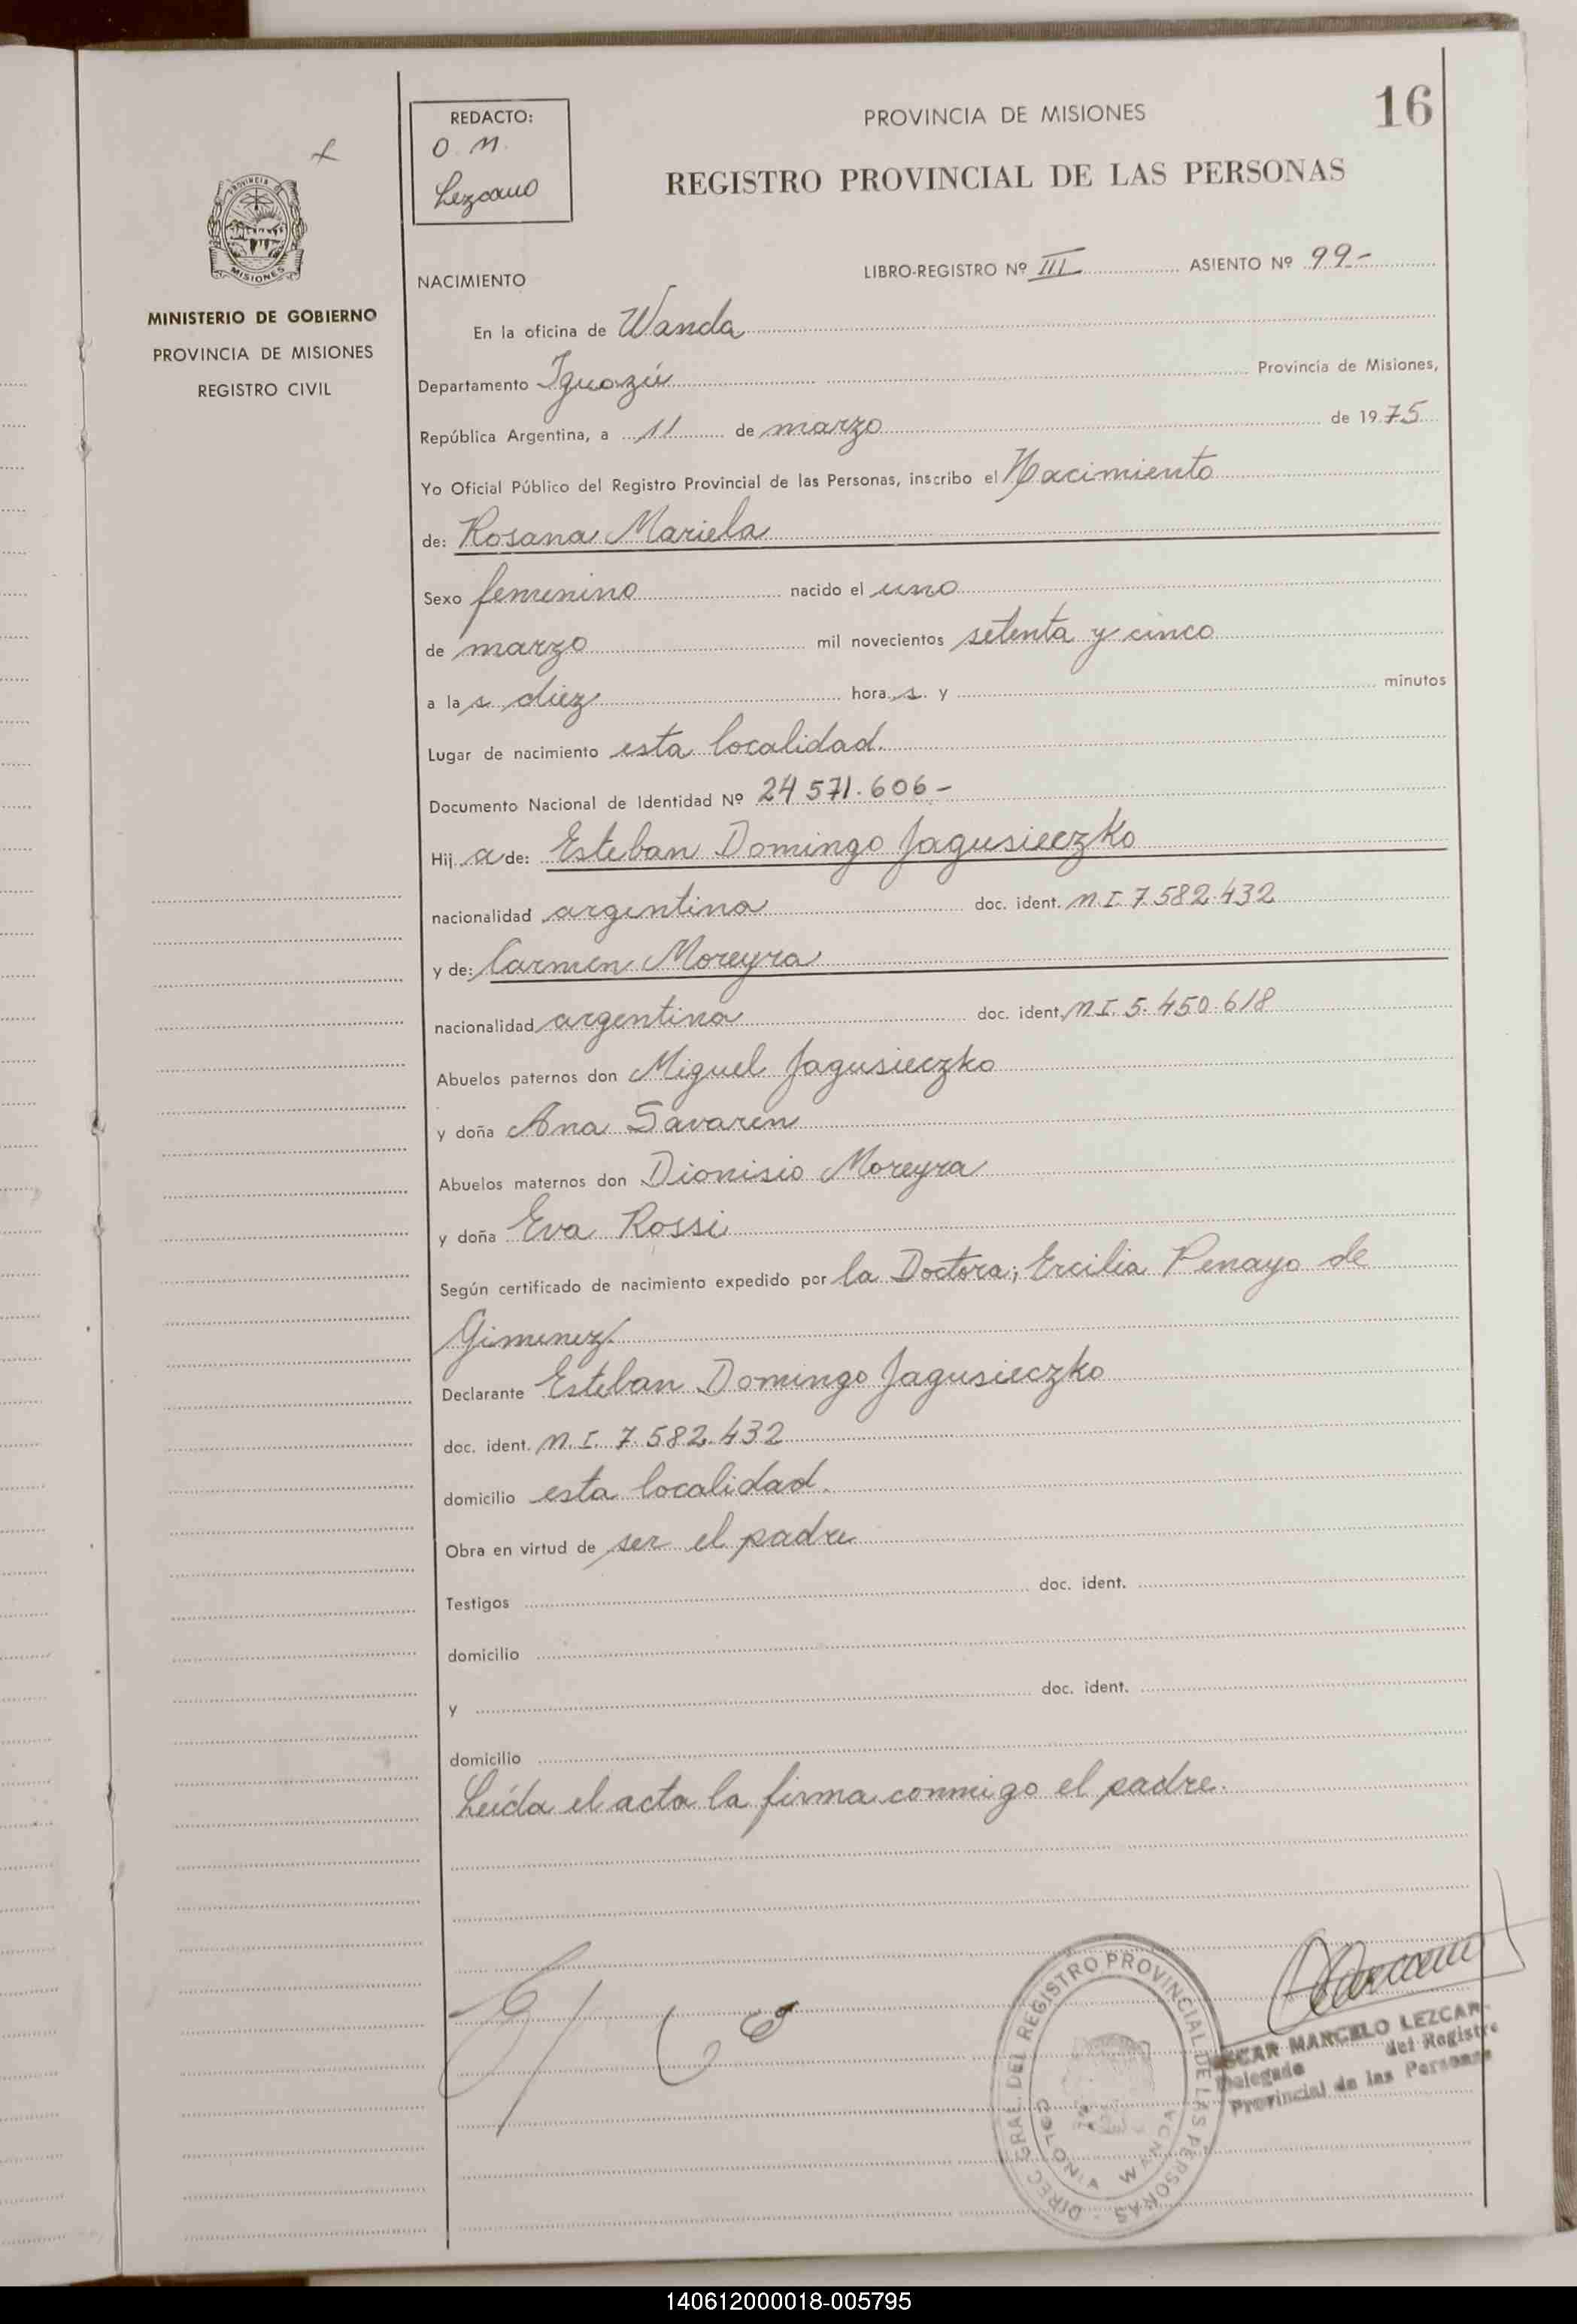 16
REDACTO:
O. M.
Lezcano
PROVINCIA DE MISIONES
REGISTRO PROVINCIAL DE LAS PERSONAS
PROVINCIA DE
MISIONES
MINISTERIO DE GOBIERNO
PROVINCIA DE MISIONES
REGISTRO CIVIL
LIBRO-REGISTRO Nº III ASIENTO Nº 99-
NACIMIENTO
En la oficina de Wanda
Departamento Iguazú Provincia de Misiones,
República Argentina, a 11 de marzo de 1975
Yo Oficial Público del Registro Provincial de las Personas, inscribo el Nacimiento
de: Rosana Mariela
Sexo femenino nacido el uno
de marzo mil novecientos setenta y cinco
a la s diez hora s y minutos
Lugar de nacimiento esta localidad.
Documento Nacional de Identidad Nº 24 571.606-
Hij a de: Esteban Domingo Jagusieczko
nacionalidad argentina doc. ident. M.I. 7.582.432
y de: Carmen Moreyra
nacionalidad argentina doc. ident. M.I. 5.450.618
Abuelos paternos don Miguel Jagusieczko
y doña Ana Savaren
Abuelos maternos don Dionisio Moreyra
y doña Eva Rossi
Según certificado de nacimiento expedido por la Doctora; Ercilia Penayo de
Gimenez.
Declarante Esteban Domingo Jagusieczko
doc. ident. M.I. 7.582.432
domicilio esta localidad.
Obra en virtud de ser el padre
Testigos doc. ident.
domicilio
y doc. ident.
domicilio
Leída el acta la firma conmigo el padre.
DIREC. GRAL. DEL REGISTRO PROVINCIAL DE LAS PERSONAS
COLONIA WANDA
OSCAR MARCELO LEZCAN
Delegado del Registro
Provincial de las Personas
140612000018-005795